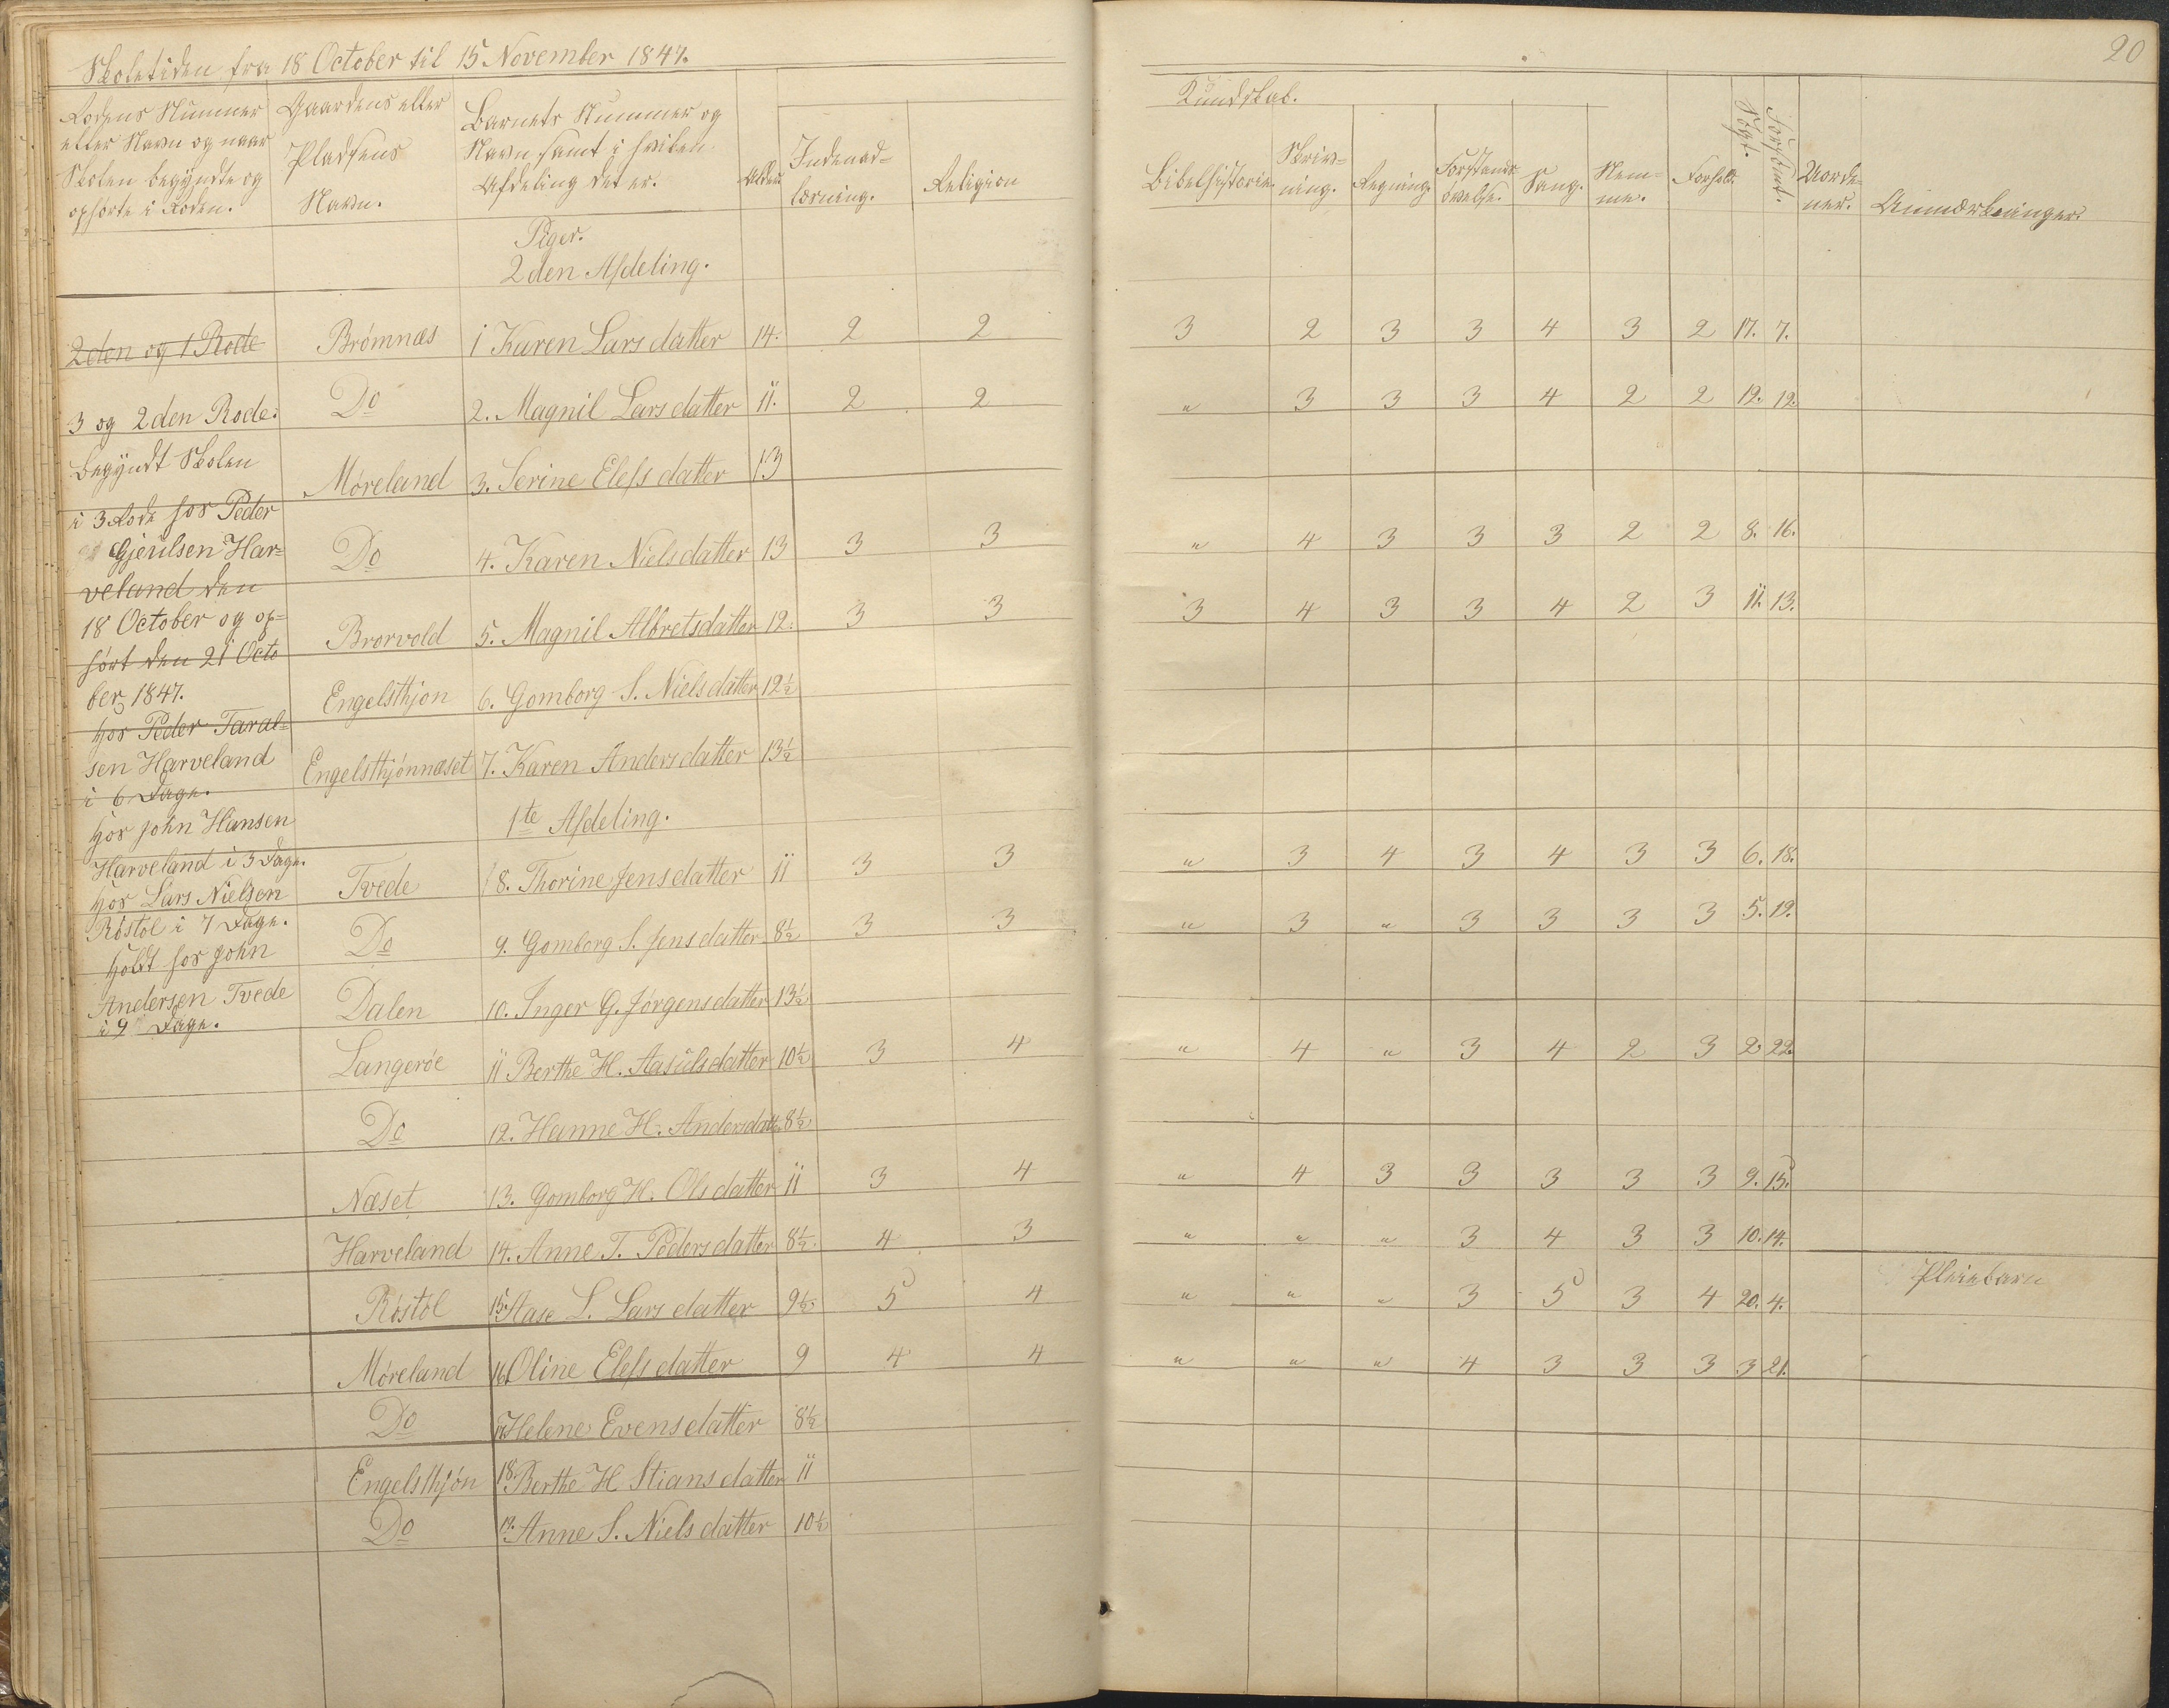 20
Skoletiden fra 18 October til 15 November 1847.
Rodens Nummer eller Navn og naar Skolen begyndte og ophørte i Roden.
Gaardens eller Pladsens Navn.
Barnets Nummer og Navn samt i hvilken Afdeling det er.
Alder.
Indenad-læsning.
Religion
Kundskab.
Bibelhistorie.
Skriv-ning.
Regning.
Forstands øvelse.
Sang.
Nem-me.
Forhold.
Søgt.
Forsømt.
Uorde-ner.
Anmærkninger.
Piger.
2den Afdeling.
Brømnæs 1 Karen Larsdatter 14. 2 2 3 2 3 3 4 3 2 17. 7.
Do 2. Magnil Larsdatter 11. 2 2 " 3 3 3 4 2 2 12. 12.
Møreland 3. Serine Elefsdatter 13
Do 4. Karen Nielsdatter 13 3 3 " 4 3 3 3 2 2 8. 16.
Brorvold 5. Magnil Albretsdatter 12. 3 3 3 4 3 3 4 2 3 11. 13.
Engelsthjon 6. Gomborg S. Nielsdatter 12½
Engelsthjønnæset 7. Karen Andersdatter 13½
1te Afdeling.
Tvede 8. Thorine Jensdatter 11 3 3 " 3 4 3 4 3 3 6. 18.
Do 9. Gomborg S. Jensdatter 8½ 3 3 " 3 " 3 3 3 3 5. 19.
Dalen 10. Inger G. Jørgensdatter 13½
Langerøe 11 Berthe H. Aasulsdatter 10½ 3 4 " 4 " 3 4 2 3 2 22.
Do 12. Hanne H. Andersdatt. 8½
Næset 13. Gomborg H. Olsdatter 11 3 4 " 4 3 3 3 3 3 9. 15.
Harveland 14. Anne T. Pedersdatter 8½. 4 3 " " " 3 4 3 3 10. 14.
Røstøl 15. Aase L. Larsdatter 9½ 5 4 " " " 3 5 3 4 20. 4. Pleiebarn
Møreland 16. Oline Elefsdatter 9 4 4 " " " 4 3 3 3 3 21.
Do 17. Helene Evensdatter 8½
Engelsthjøn 18. Berthe H Stiansdatter 11
Do 19. Anne S. Nielsdatter 10½
2den og 1 Rode
3 og 2den Rode.
begyndt Skolen
i 3 Rode hos Peder
Gjeulsen Har=
veland den
18 October og op=
hørt den 21 Octo
ber 1847.
hos Peder Taral=
sen Harveland
i 6 Dage.
hos John Hansen
Harveland i 3 Dage.
hos Lars Nielsen
Røstøl i 7 Dage.
holdt hos John
Andersen Tvede
i 9 Dage.